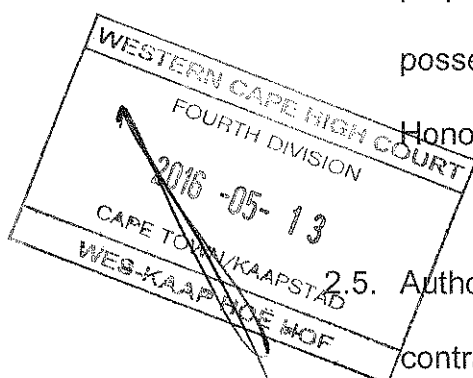 posse
WESTERN CAPE HIGH COURT
Hono
FOURTH DIVISION
2016 -05- 13
CAPE TOWN/KAAPSTAD
WES-KAAP HOË HOF
2.5. Autho
contr